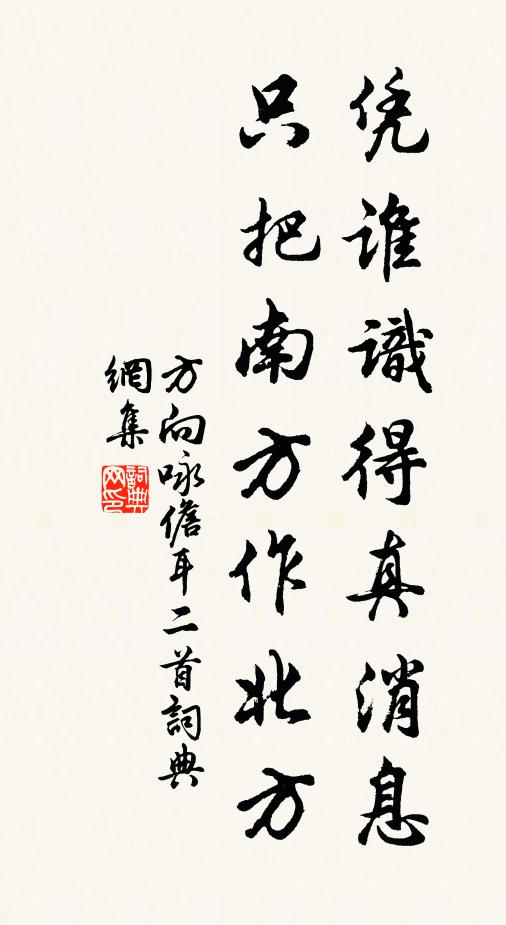 凭誰識得真消息
只把南方作北方
方向咏儋耳二首詞典
網集
詞典網印